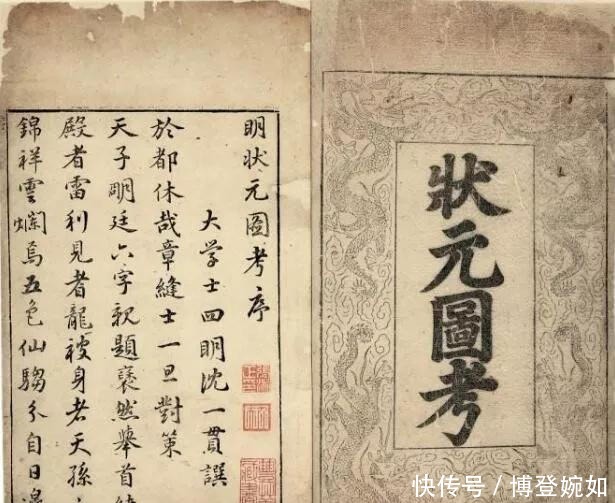 狀元圖考
明狀元圖考序
大学士四明沈一貫譔
於都休哉章縫士一旦對策
天子明廷六字親題褎然舉首
殿者雷利見者龍被身者天孫
錦祥雲爛焉五色仙騶分自日邊
快传号／博登婉如